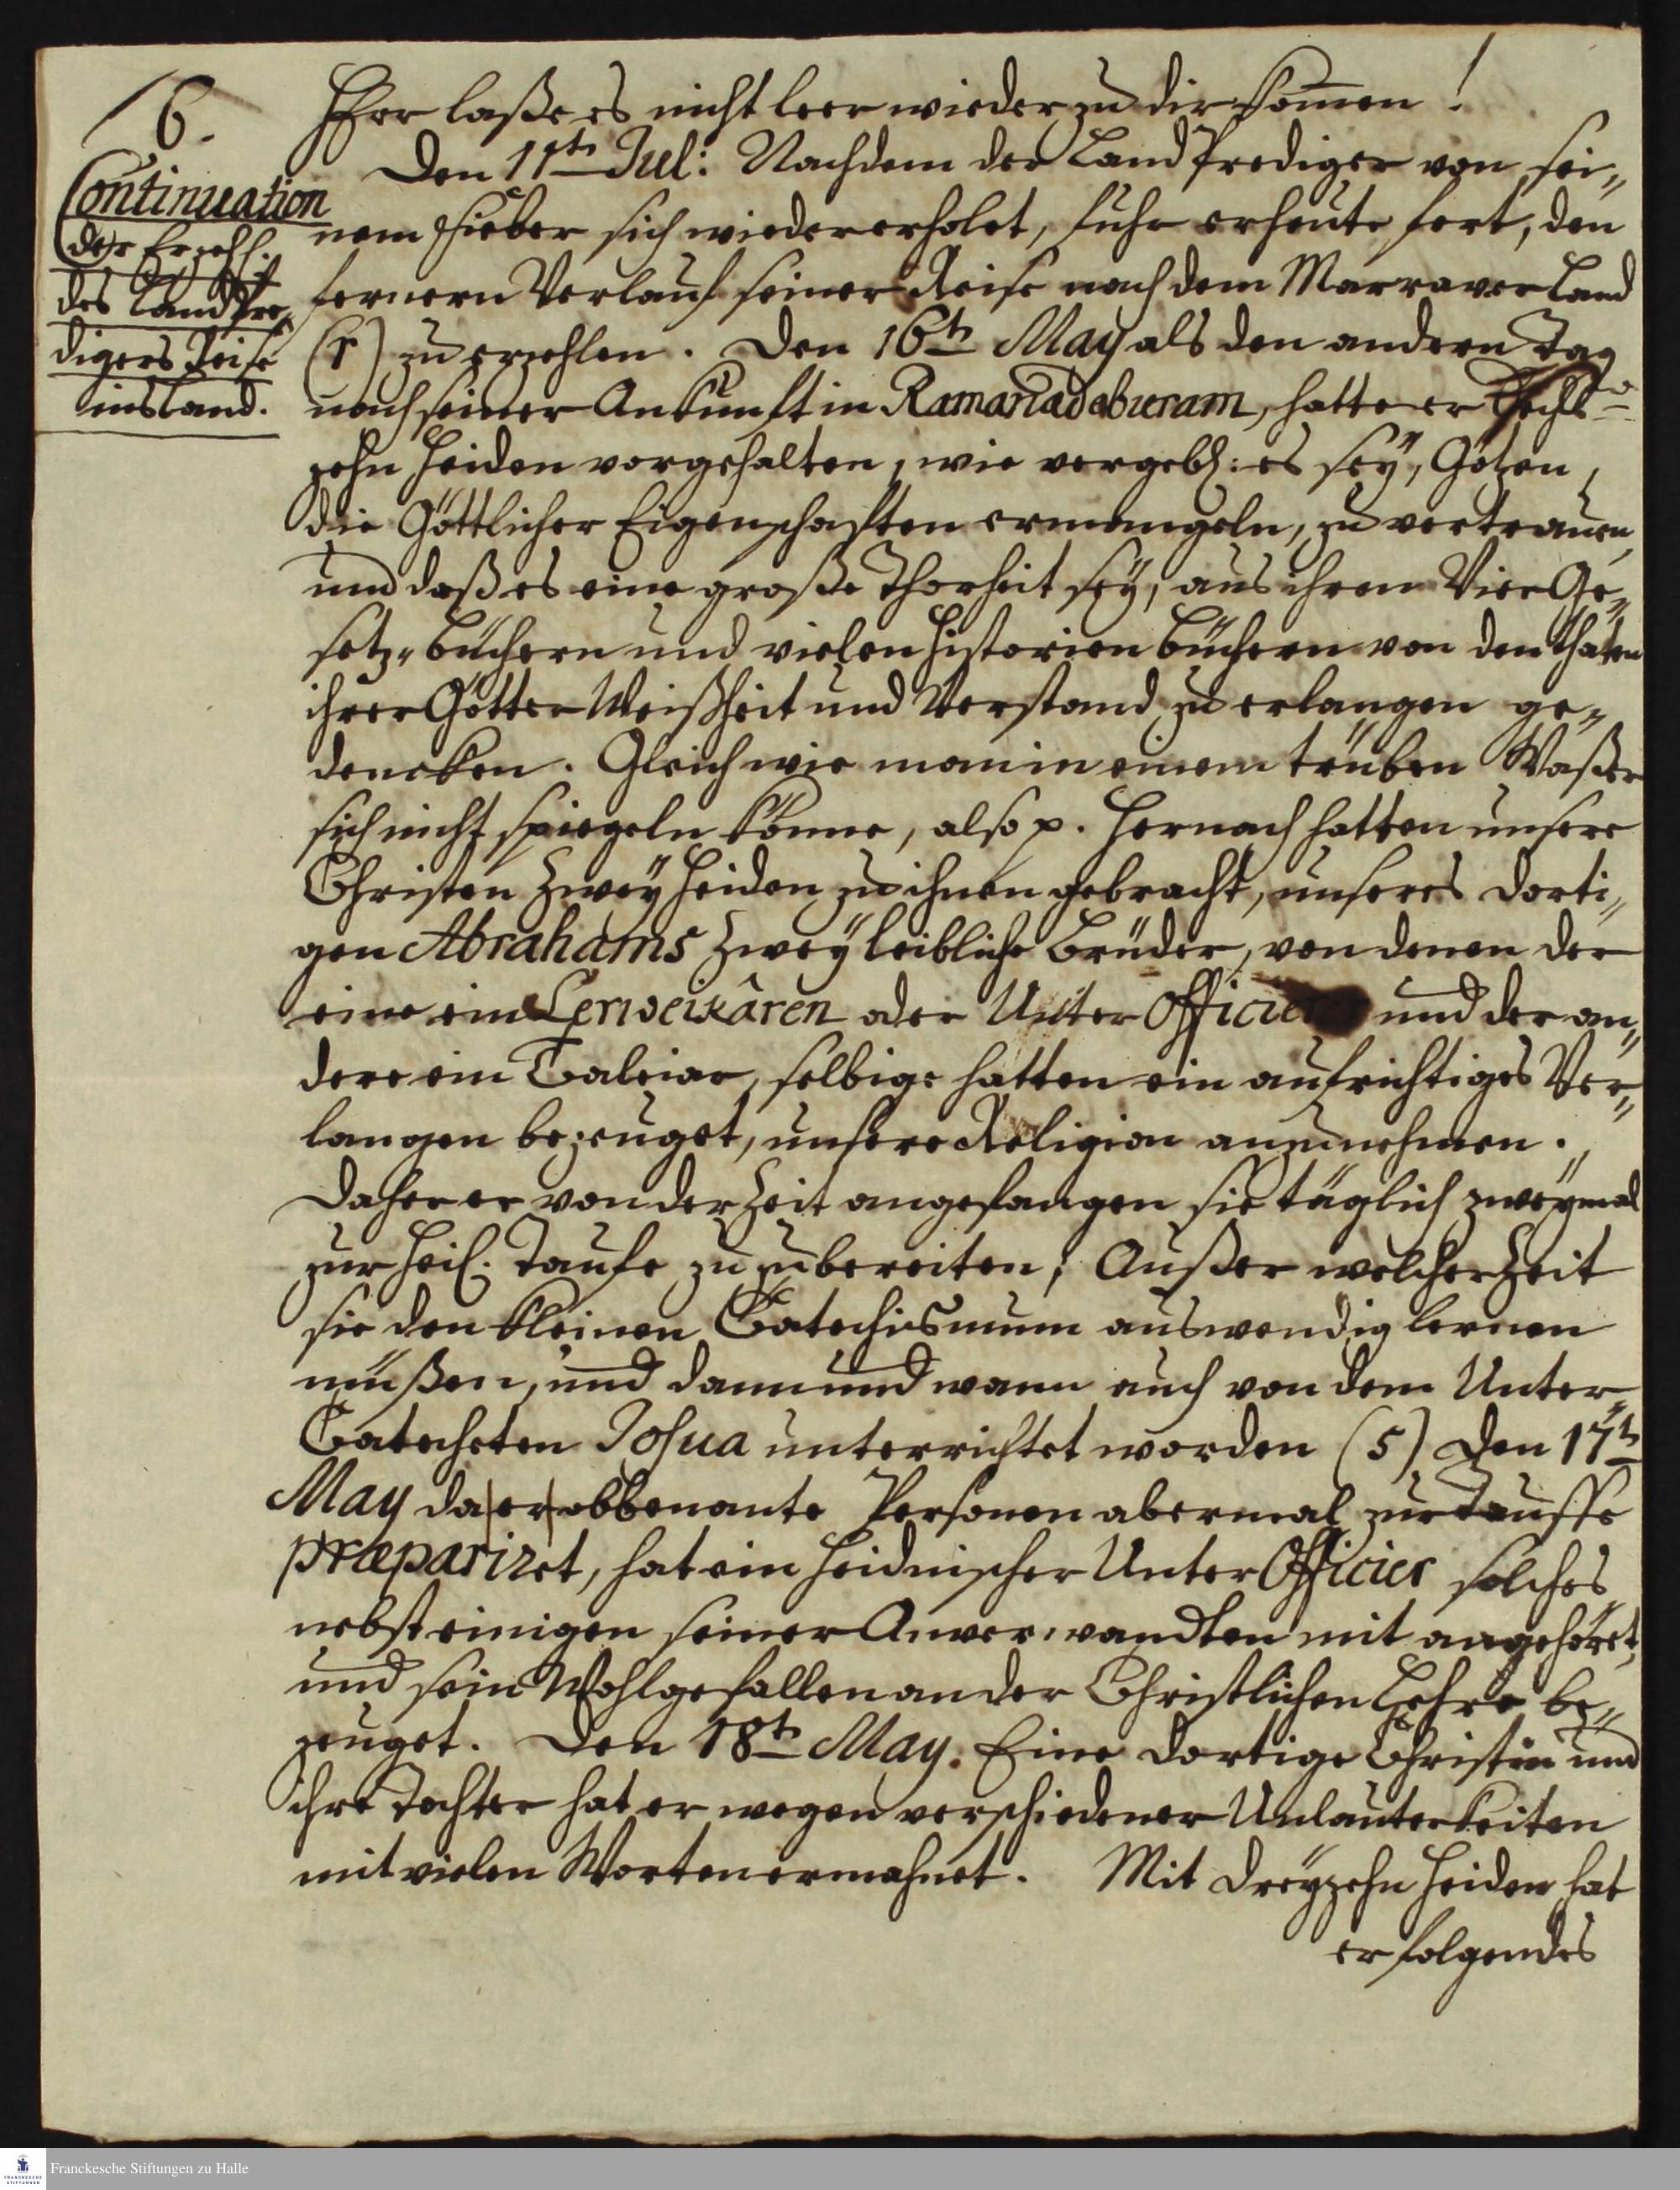 6.
Continuation
der Erzehl.
des Land Pre„
digers Reise
ins Land.
HErr laße es nicht leer wieder zu dir kom̄en!
Den 11t. Jul: Nachdem der Land Prediger von sei„
nem Fieber sich wieder erholet, fuhr er heute fort, den
fernern Verlauf seiner Reise nach dem Marraver Land
(r) zu erzehlen. Den 16t. May als den andern Tag
nach seiner Ankunft in Ramanadaburam, hatte er Sechs-
zehn Heiden vorgehalten, wie vergebl: es seÿ, Götzen,
die Göttlicher Eigenschafften ermangeln, zu vertrauen,
und daß es eine große Thorheit seÿ, aus ihren Vier Ge„
setz„Büchern und vielen Historien Büchern von den Thaten
ihrer Götter Weißheit und Verstand zu erlangen ge„
dencken. Gleich wie man in einem trüben Waßer
sich nicht spiegeln könne, also p. Hernach hatten unsere
Christen Zweÿ Heiden zu ihnen gebracht, unseres dorti„
gen Abrahams Zweÿ leibliche Brüder, von denen der
eine ein Cerweikâren oder Unter Officier und der an„
dere ein Taleiar, selbige hatten ein aufrichtiges Ver„
langen bezeuget, unsere Religion anzunehmen.
Daher er von der Zeit angefangen sie täglich zweÿmal
zur Heil. Taufe zuzubereiten; Außer welcher Zeit
sie den kleinen Catechismum auswendig lernen
müßen, und dann und wann auch von dem Unter„
Catecheten Josua unterrichtet worden (s) Den 17t.
May da er obbenante Personen abermal zur Tauffe
præpariret, hat ein Heidnischer Unter Officier solches
nebst einigen seiner Anverwandten mit angehöret,
und sein Wohlgefallen an der Christlichen Lehre be„
zeuget. Den 18t. May. Eine dortige Christin und
ihre Tochter hat er wegen verschiedener Unlauterkeiten
mit vielen Worten ermahnet. Mit dreÿzehn Heiden hat
er folgendes
Franckesche Stiftungen zu Halle